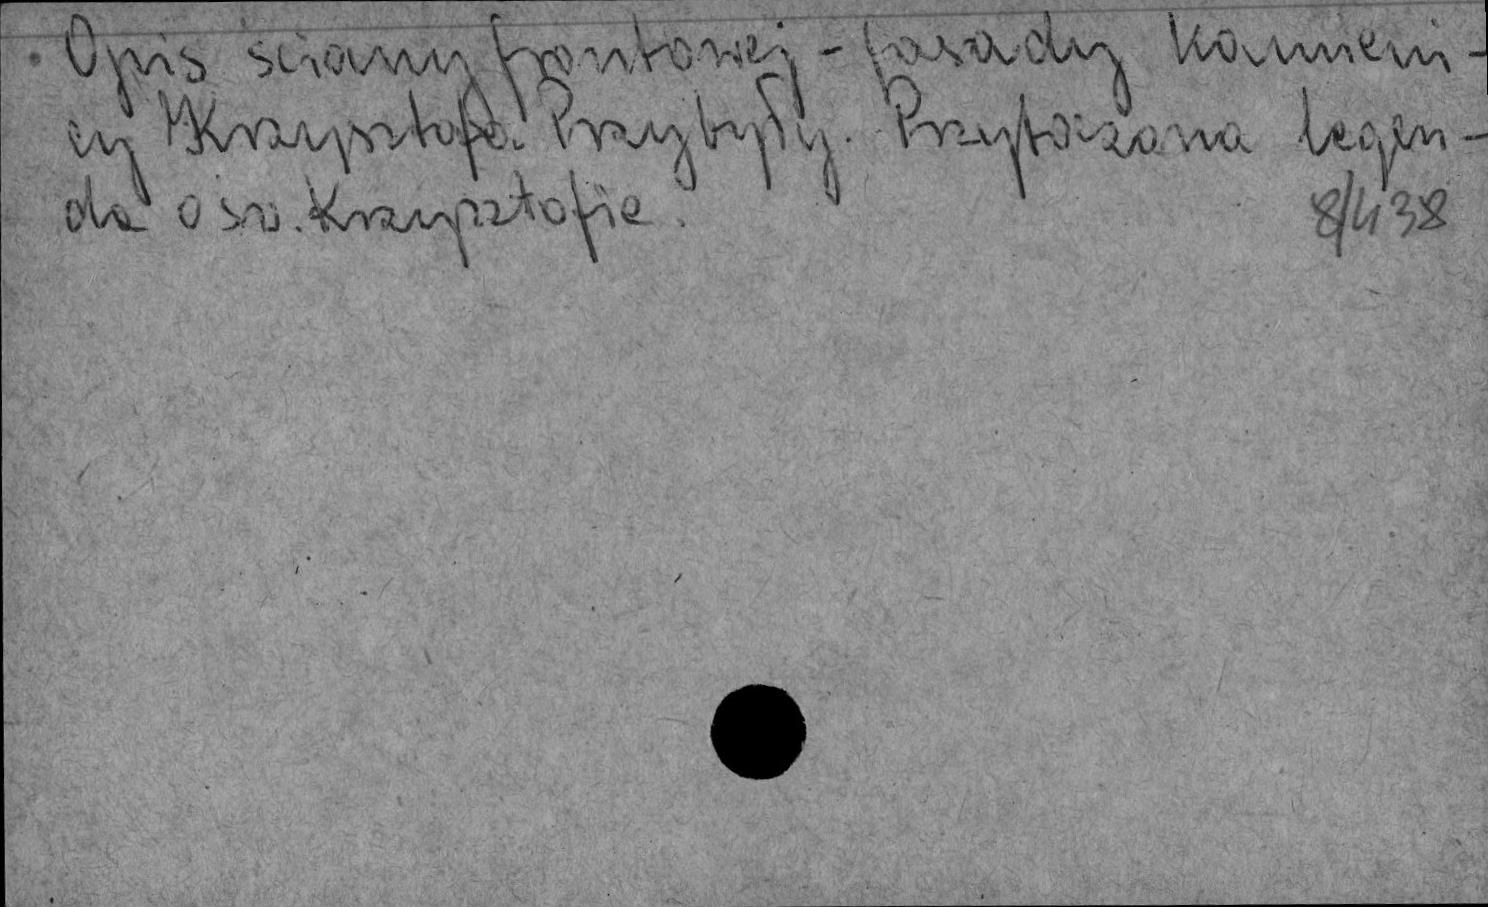 Opis ściany frontowej - fasady kamieni-
cy Krzysztofa Przybyły. Przytoczona legen-
da o św. Krzysztofie. 8/438